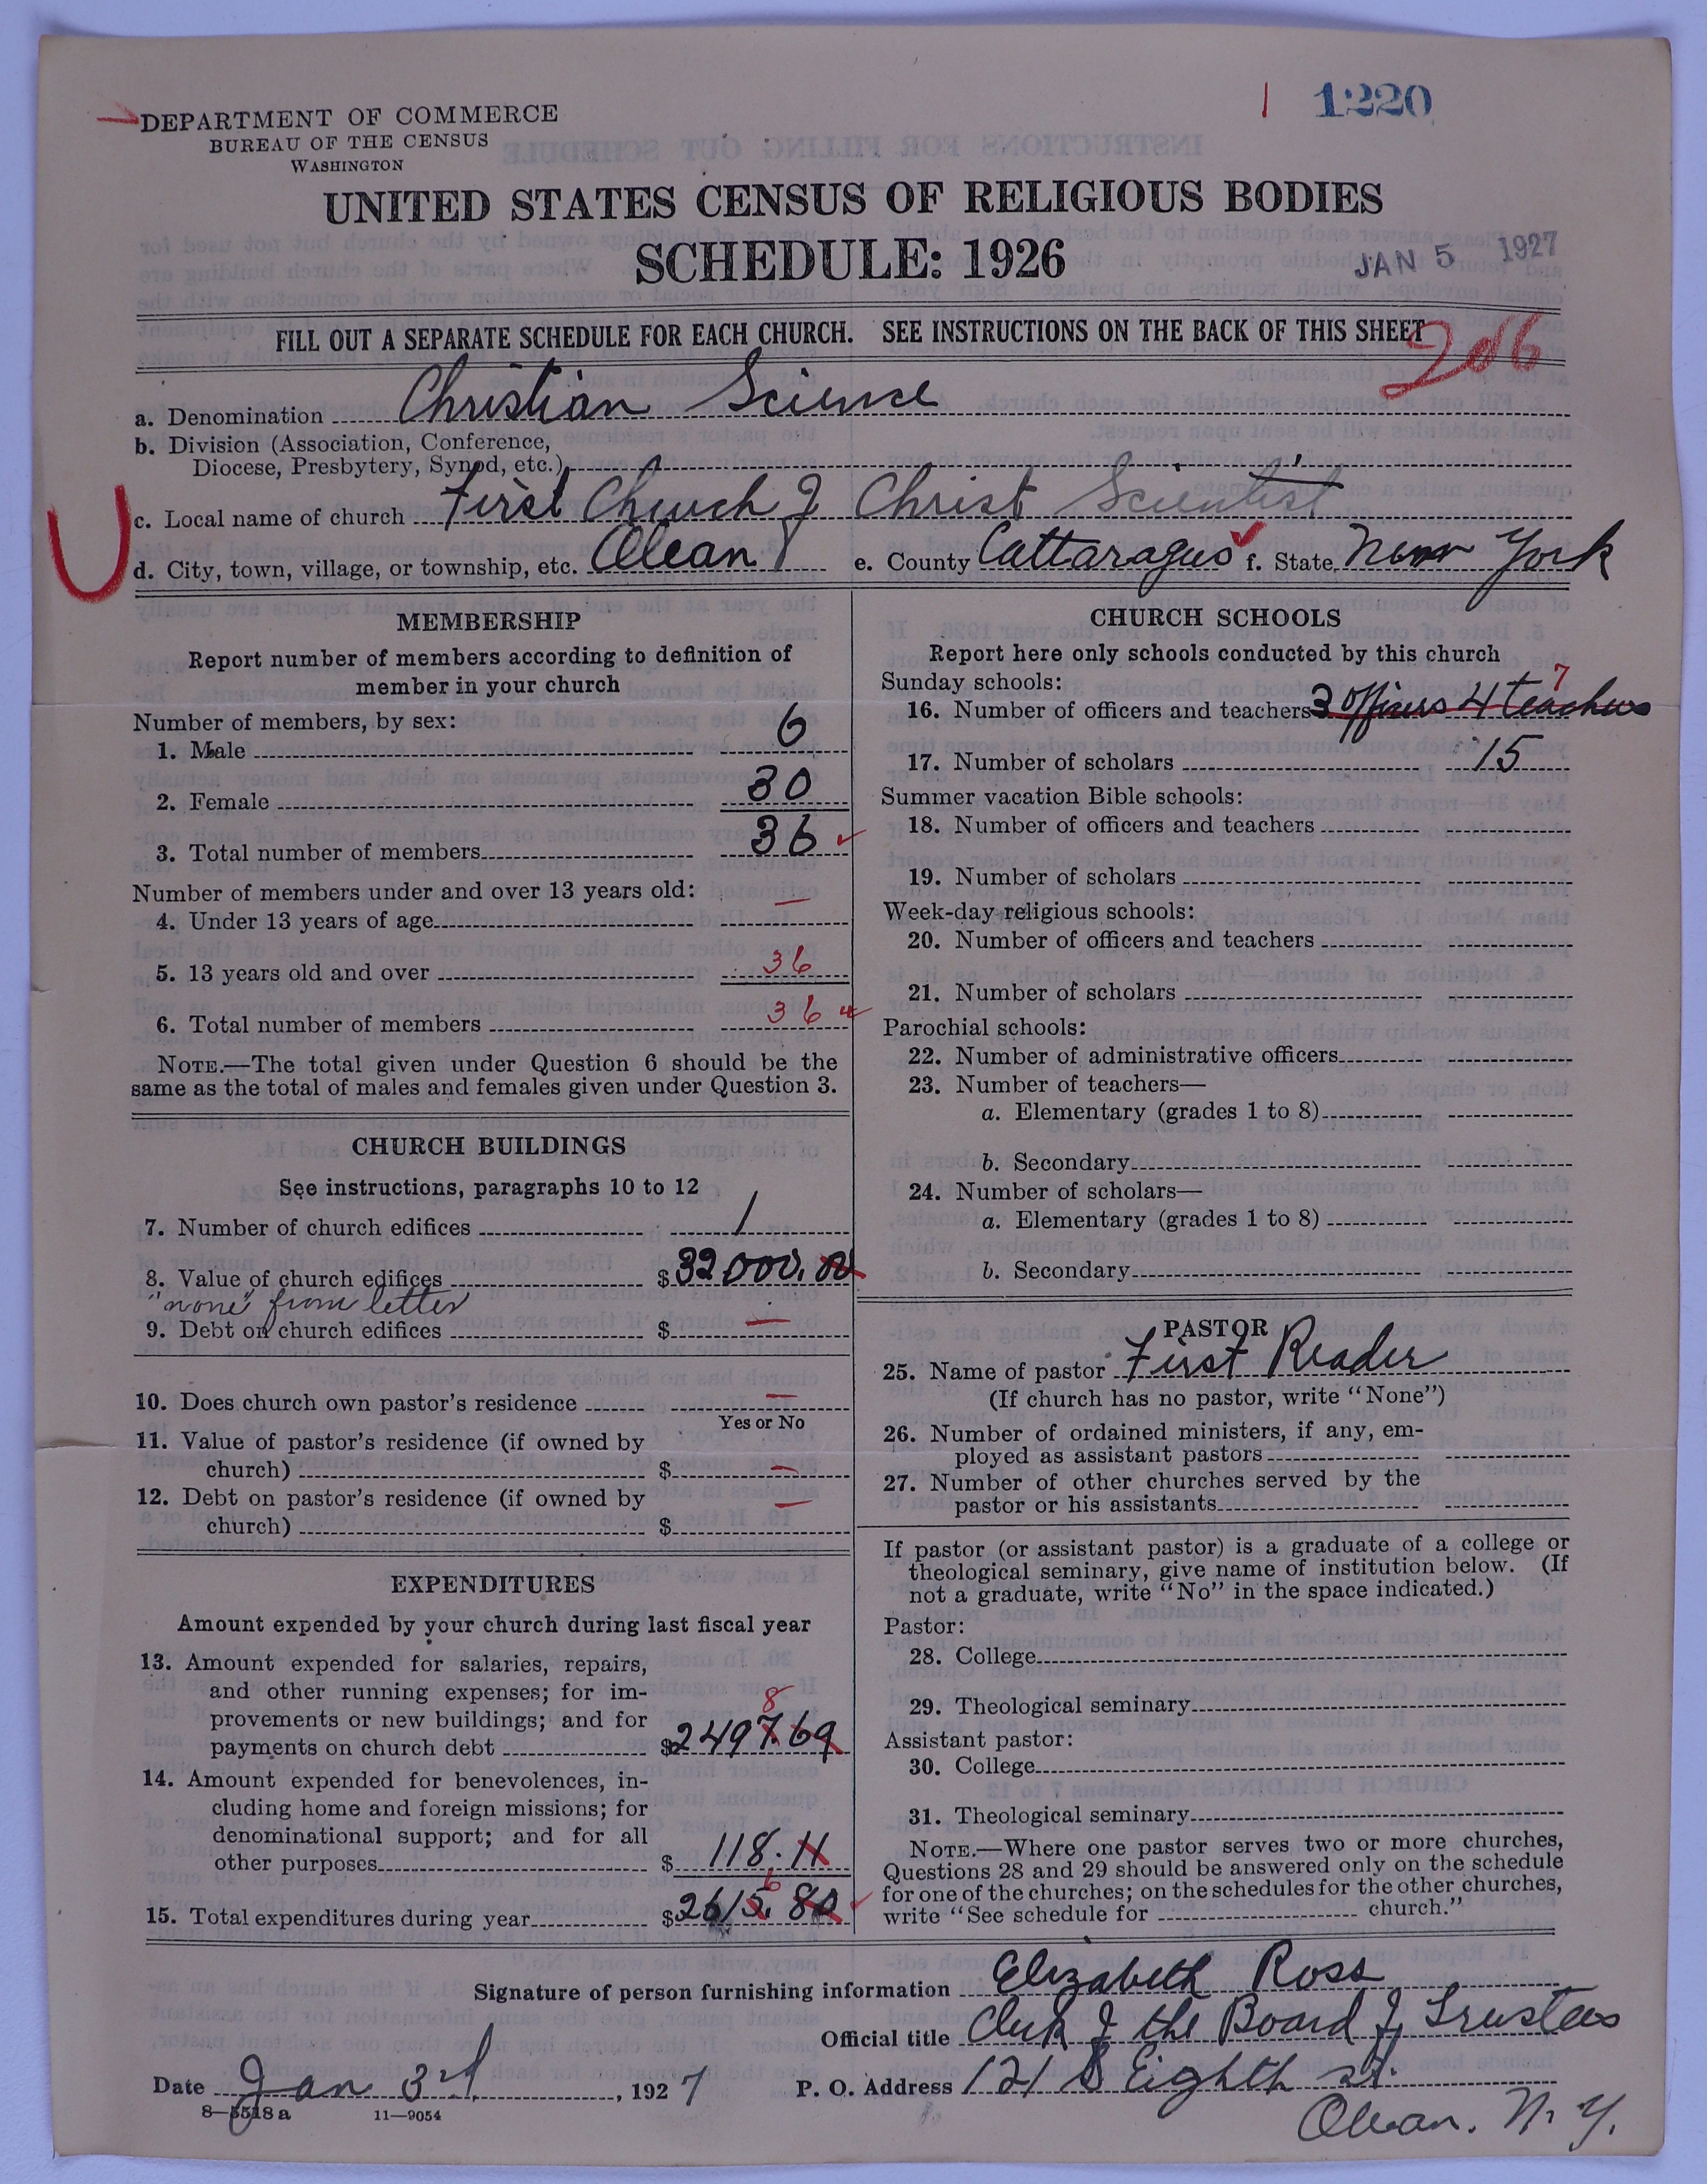 1 1220
DEPARTMENT OF COMMERCE
BUREAU OF THE CENSUS
WASHINGTON
UNITED STATES CENSUS OF RELIGIOUS BODIES
SCHEDULE: 1926
JAN 5 1927
FILL OUT A SEPARATE SCHEDULE FOR EACH CHURCH. SEE INSTRUCTIONS ON THE BACK OF THIS SHEET
206
a. Denomination Christian Science
b. Division (Association, Conference,
Diocese, Presbytery, Synod, etc.)
c. Local name of church First Church of Christ Scientist
d. City, town, village, or township, etc. Olean e. County Cattaragus f. State New York
MEMBERSHIP
Report number of members according to definition of
member in your church
Number of members, by sex:
1. Male 6
2. Female 30
3. Total number of members 36
Number of members under and over 13 years old:
4. Under 13 years of age —
5. 13 years old and over 36
6. Total number of members 36
NOTE.—The total given under Question 6 should be the
same as the total of males and females given under Question 3.
CHURCH BUILDINGS
See instructions, paragraphs 10 to 12
7. Number of church edifices 1
8. Value of church edifices $32000.00
"none" from letter
9. Debt on church edifices $ —
10. Does church own pastor's residence —
Yes or No
11. Value of pastor's residence (if owned by
church) $ —
12. Debt on pastor's residence (if owned by —
church) $
EXPENDITURES
Amount expended by your church during last fiscal year
13. Amount expended for salaries, repairs,
and other running expenses; for im-
provements or new buildings; and for 8
payments on church debt $2497.69
14. Amount expended for benevolences, in-
cluding home and foreign missions; for
denominational support; and for all
other purposes $ 118.11
6
15. Total expenditures during year $2615.80
CHURCH SCHOOLS
Report here only schools conducted by this church
Sunday schools: 7
16. Number of officers and teachers 3 officers 4 teachers
17. Number of scholars 15
Summer vacation Bible schools:
18. Number of officers and teachers
19. Number of scholars
Week-day religious schools:
20. Number of officers and teachers
21. Number of scholars
Parochial schools:
22. Number of administrative officers
23. Number of teachers—
a. Elementary (grades 1 to 8)
b. Secondary
24. Number of scholars—
a. Elementary (grades 1 to 8)
b. Secondary
PASTOR
25. Name of pastor First Reader
(If church has no pastor, write "None")
26. Number of ordained ministers, if any, em-
ployed as assistant pastors
27. Number of other churches served by the
pastor or his assistants
If pastor (or assistant pastor) is a graduate of a college or
theological seminary, give name of institution below. (If
not a graduate, write "No" in the space indicated.)
Pastor:
28. College
29. Theological seminary
Assistant pastor:
30. College
31. Theological seminary
NOTE.—Where one pastor serves two or more churches,
Questions 28 and 29 should be answered only on the schedule
for one of the churches; on the schedules for the other churches,
write "See schedule for church."
Signature of person furnishing information Elizabeth Ross
Official title Clerk of the Board of Trustees
Date Jan 3rd, 1927 P. O. Address 121 S Eighth St.
8—5518 a 11—9054 Olean. N. Y.